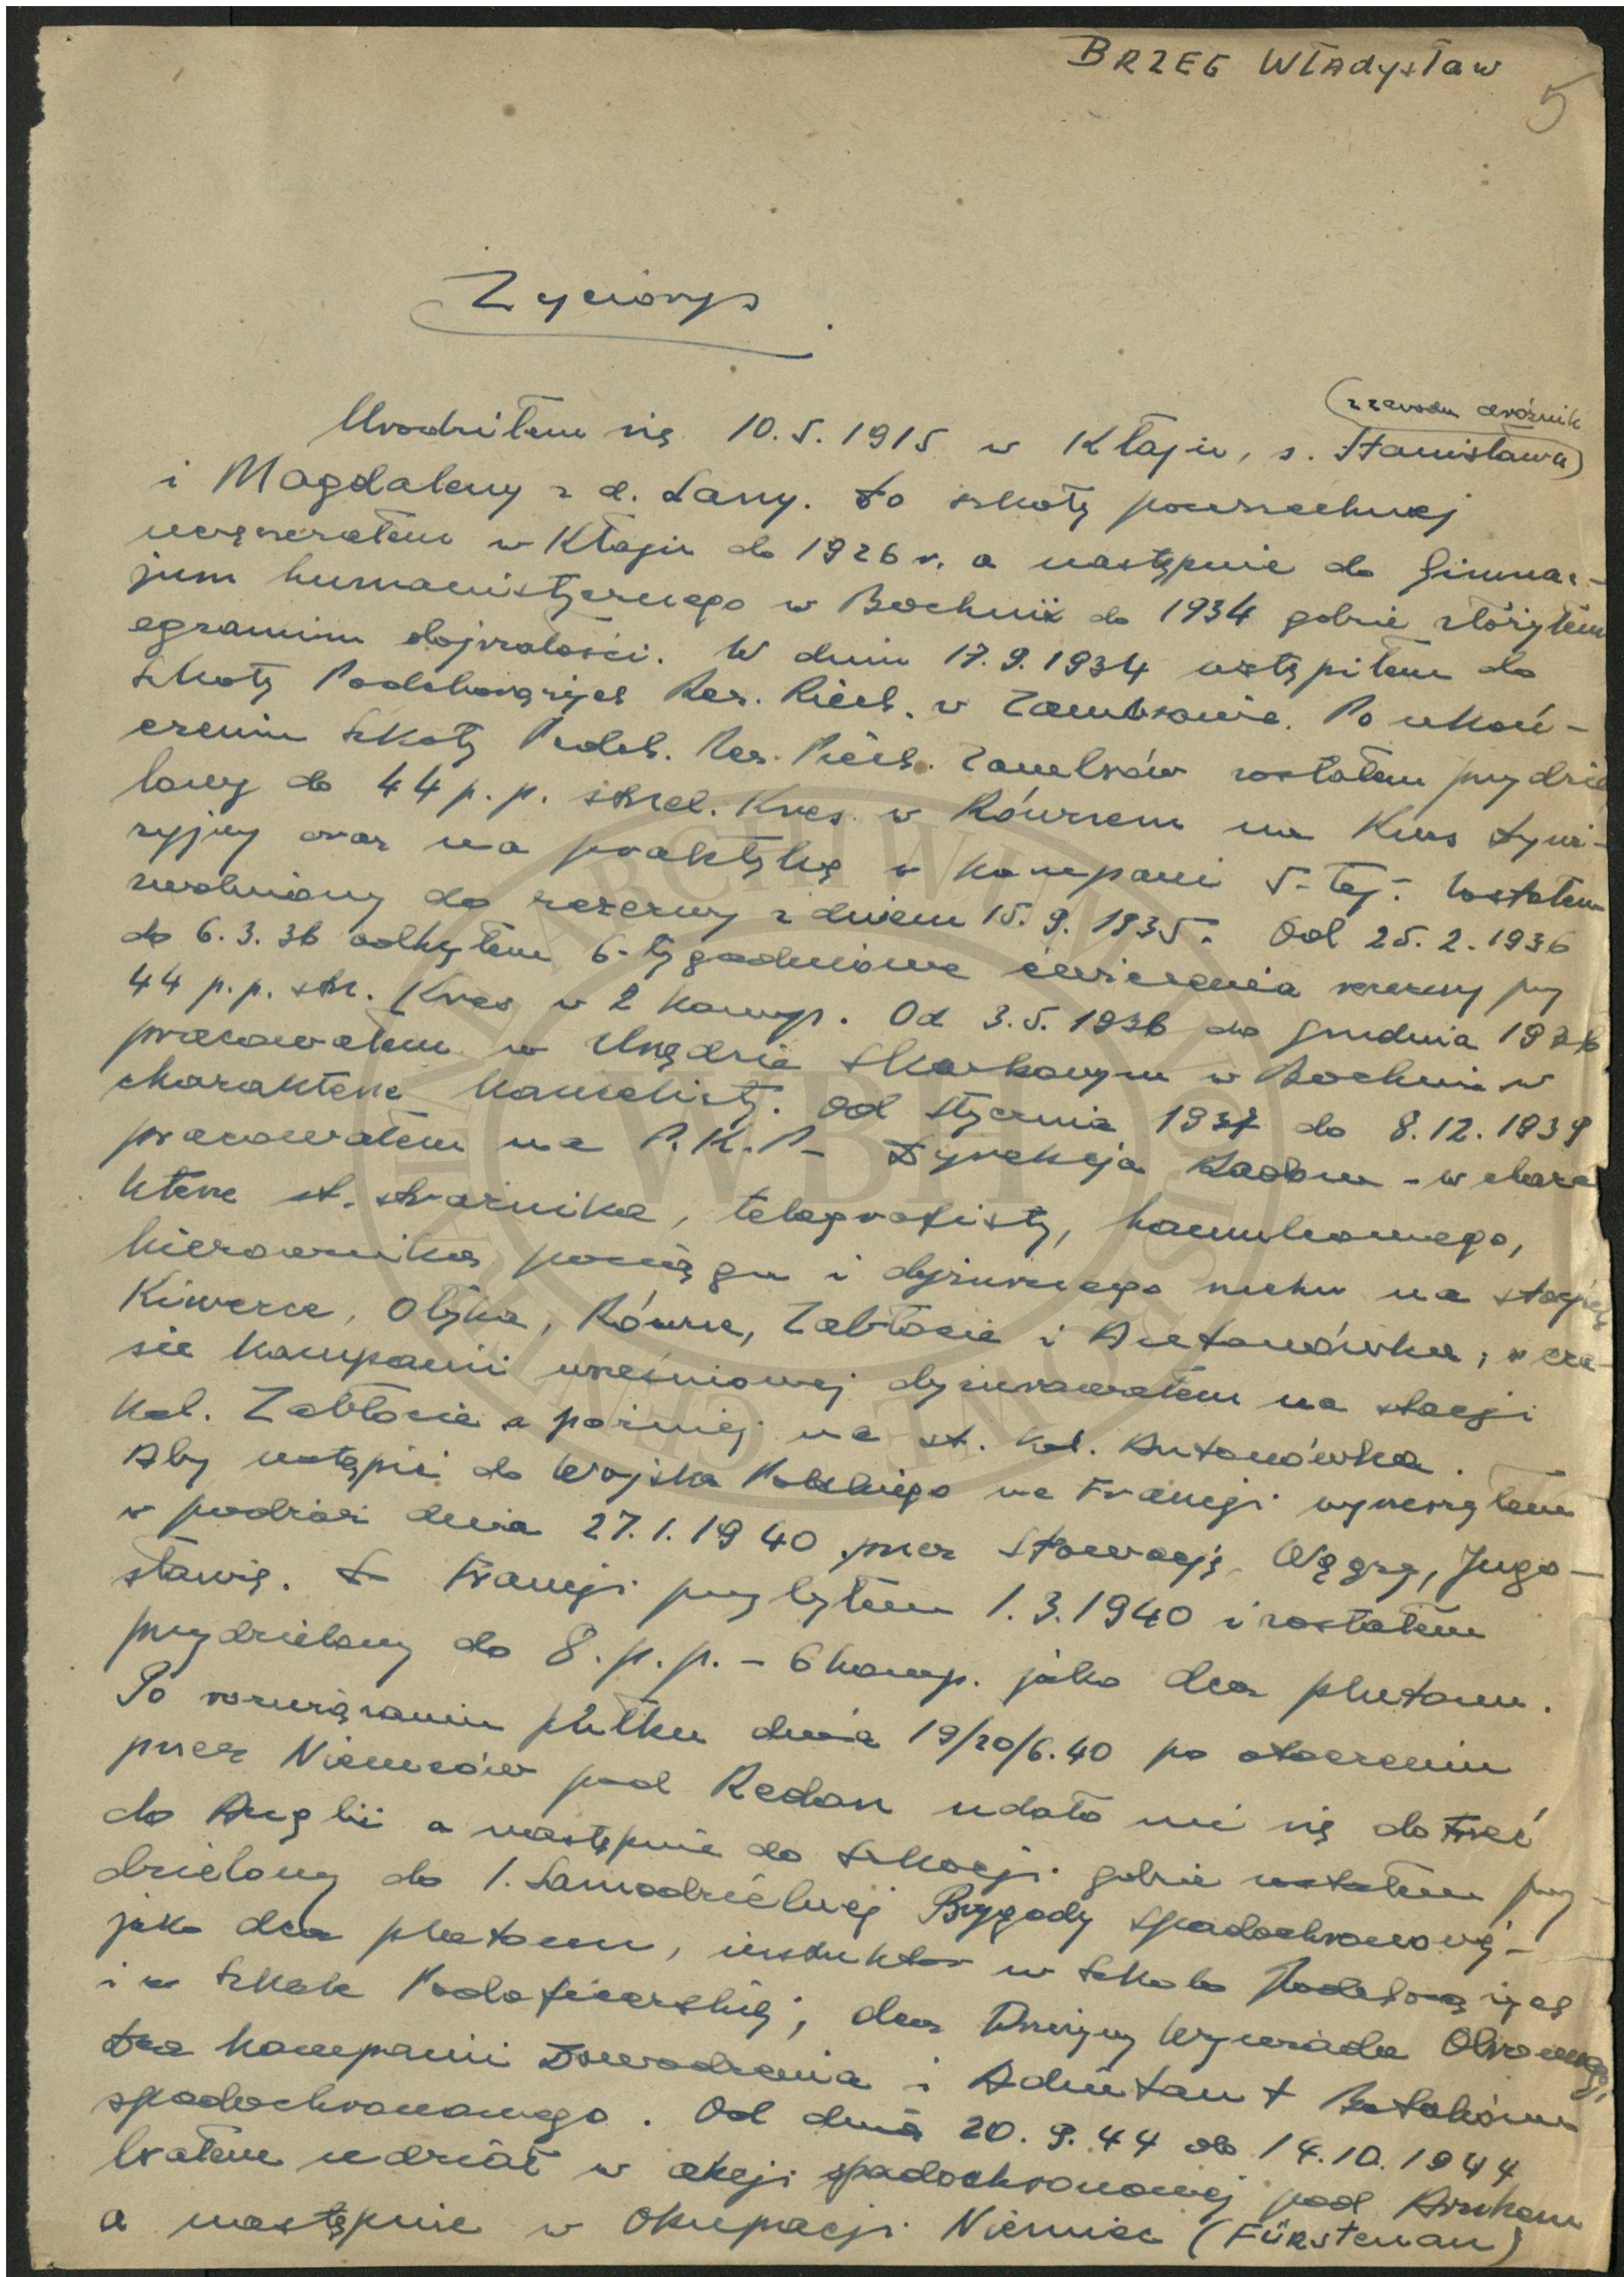 BRZEG WŁAdysław
5
Życiorys
(z zawodu dróżnik
Urodziłem się 10.5.1915 w Kłaju, s. Stanisława)
i Magdaleny z d. Lany. Do szkoły powszechnej
uczęszczałem w Kłaju do 1926 r. a następnie do Gimnaz-
jum humanistycznego w Bochni do 1934 gdzie złożyłem
egzamin dojrzałości. W dniu 17.9.1934 wstąpiłem do
Szkoły Podchorążych Rez. Piech. w Zambrowie. Po ukoń-
czeniu Szkoły Podch. Rez. Piech. Zambrów zostałem przydzie
lony do 44 p.p. strzel. Kres. w Równem na Kurs Uni-
zyjny oraz na praktykę w kompani 5-tej. Zostałem
zwolniony do rezerwy z dniem 15.9.1935. Od 25.2.1936
do 6.3.36 odbyłem 6-tygodniowe ćwiczenia rezerwy przy
44 p.p. str. Kres w 2 komp. Od 3.5.1936 do grudnia 1936
pracowałem w Urzędzie Skarbowym w Bochni w
charakterze kancelisty. Od stycznia 1937 do 8.12.1939
pracowałem na P.K.P- Dyrekcja Radom - w chara
kterze st. strażnika, telegrafisty, hamulcowego,
kierownika pociągu i dyżurnego ruchu na stacjach
Kiwerce, Ołyka, Równe, Zabłocie i Antonówka, w cza-
sie kampanii wrześniowej dyżurowałem na stacji
kol. Zabłocie a poźniej na st. kol. Antonówka.
Aby wstąpić do Wojska Polskiego we Francji wyruszyłem
w podróż dnia 27.1.1940 przez Słowację, Węgry, Jugo-
sławię. Do Francji przybyłem 1.3.1940 i zostałem
przydzielony do 8.p.p. - 6 komp. jako dca plutonu.
Po rozwiązaniu pułku dnia 19/20/6.40 po otoczeniu
przez Niemców pod Redon udało mi się dotrzeć
do Anglii a następnie do Szkocji gdzie zostałem przy-
dzielony do 1. Samodzielnej Brygady Spadochronowej-
jako dca plutonu, instruktor w Szkole Podchorążych
i w Szkole Podoficerskiej, dca Drużyny Wywiadu Obronnego,
Dca Kompanii Dowodzenia i Adiutant Batalionu
spadochronowego. Od dnia 20.9.44 do 14.10.1944
brałem udział w akcji spadochronowej pod Arnhem
a następnie w okupacji Niemiec (Fürstenau)